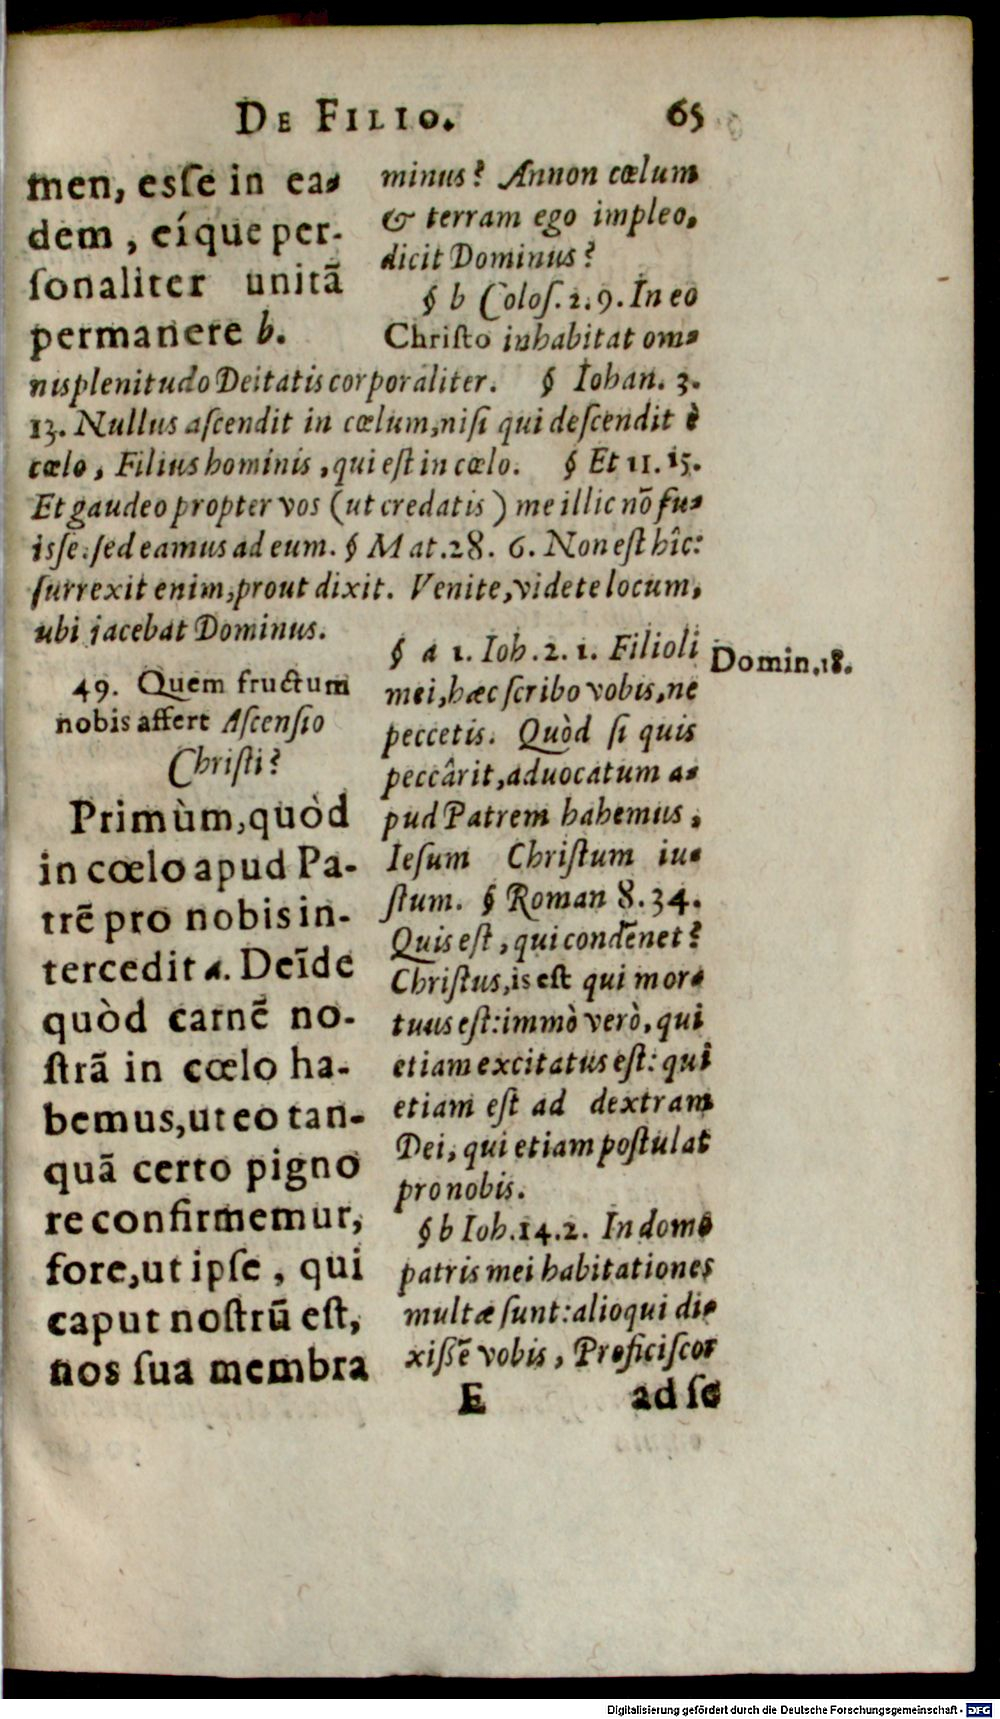 DE FILIO. 65
men, esſe in ea-
dem, eíque per-
ſonaliter unitã
permanere b.
minus? Annon cœlum
& terram ego impleo,
dicit Dominus?
§ b Coloſ. 2.9. In eo
Chriſto inhabitat om-
nis plenitudo Deitatis corporaliter. § Iohan. 3.
13. Nullus aſcendit in cœlum, niſi qui deſcendit è
cœlo, Filius hominis, qui eſt in cœlo. § Et 11.15.
Et gaudeo propter vos (ut credatis) me illic nõ fu-
iſſe. ſed eamus ad eum. § Mat. 28. 6. Non eſt hîc:
ſurrexit enim, prout dixit. Venite, videte locum,
ubi jacebat Dominus.
49. Quem fructum
nobis affert Aſcenſio
Chriſti?
Primùm, quòd
in cœlo apud Pa-
trẽ pro nobis in-
tercedit a. Deĩde
quòd carnẽ no-
ſtrã in cœlo ha-
bemus, ut eo tan-
quã certo pigno
re confirmemur,
fore, ut ipſe, qui
caput noſtrũ eſt,
nos ſua membra
§ a 1. Ioh. 2. 1. Filioli
mei, hæc ſcribo vobis, ne
peccetis. Quòd ſi quis
peccârit, aduocatum a-
pud Patrem habemus,
Ieſum Chriſtum iu-
ſtum. § Roman 8. 34.
Quis eſt, qui condẽnet?
Chriſtus, is eſt qui mor-
tuus eſt: immò verò, qui
etiam excitatus eſt: qui
etiam eſt ad dextram
Dei, qui etiam poſtulat
pro nobis.
§ b Ioh. 14.2. In domo
patris mei habitationes
multæ ſunt: alioqui di-
xiſſẽ vobis, Proficiſcor
Domin. 18.
E ad ſe
Digitalisierung gefördert durch die Deutsche Forschungsgemeinschaft - DFG